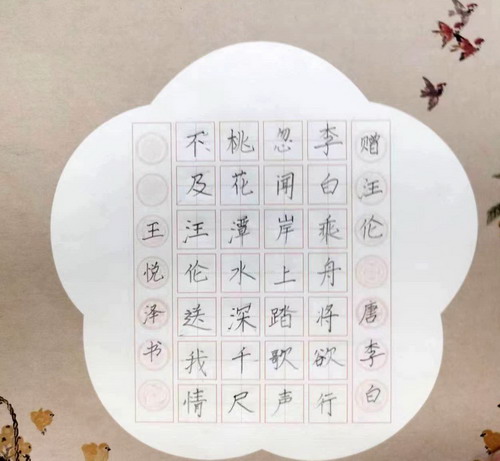 赠汪伦 唐李白
李白乘舟将欲行
忽闻岸上踏歌声
桃花潭水深千尺
不及汪伦送我情
王悦泽书